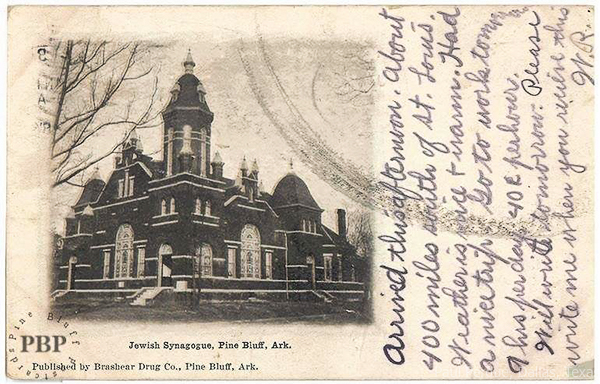 Jewish Synagogue, Pine Bluff, Ark.
Published by Brashear Drug Co., Pine Bluff, Ark.
PBP
Arrived this afternoon. About
400 miles south of St. Louis.
Weather is nice & warm. Had
a nice trip. Go to work tomorr
This per day 40¢ per hour.
Will write tomorrow. Please
write me when you receive this
W.R.